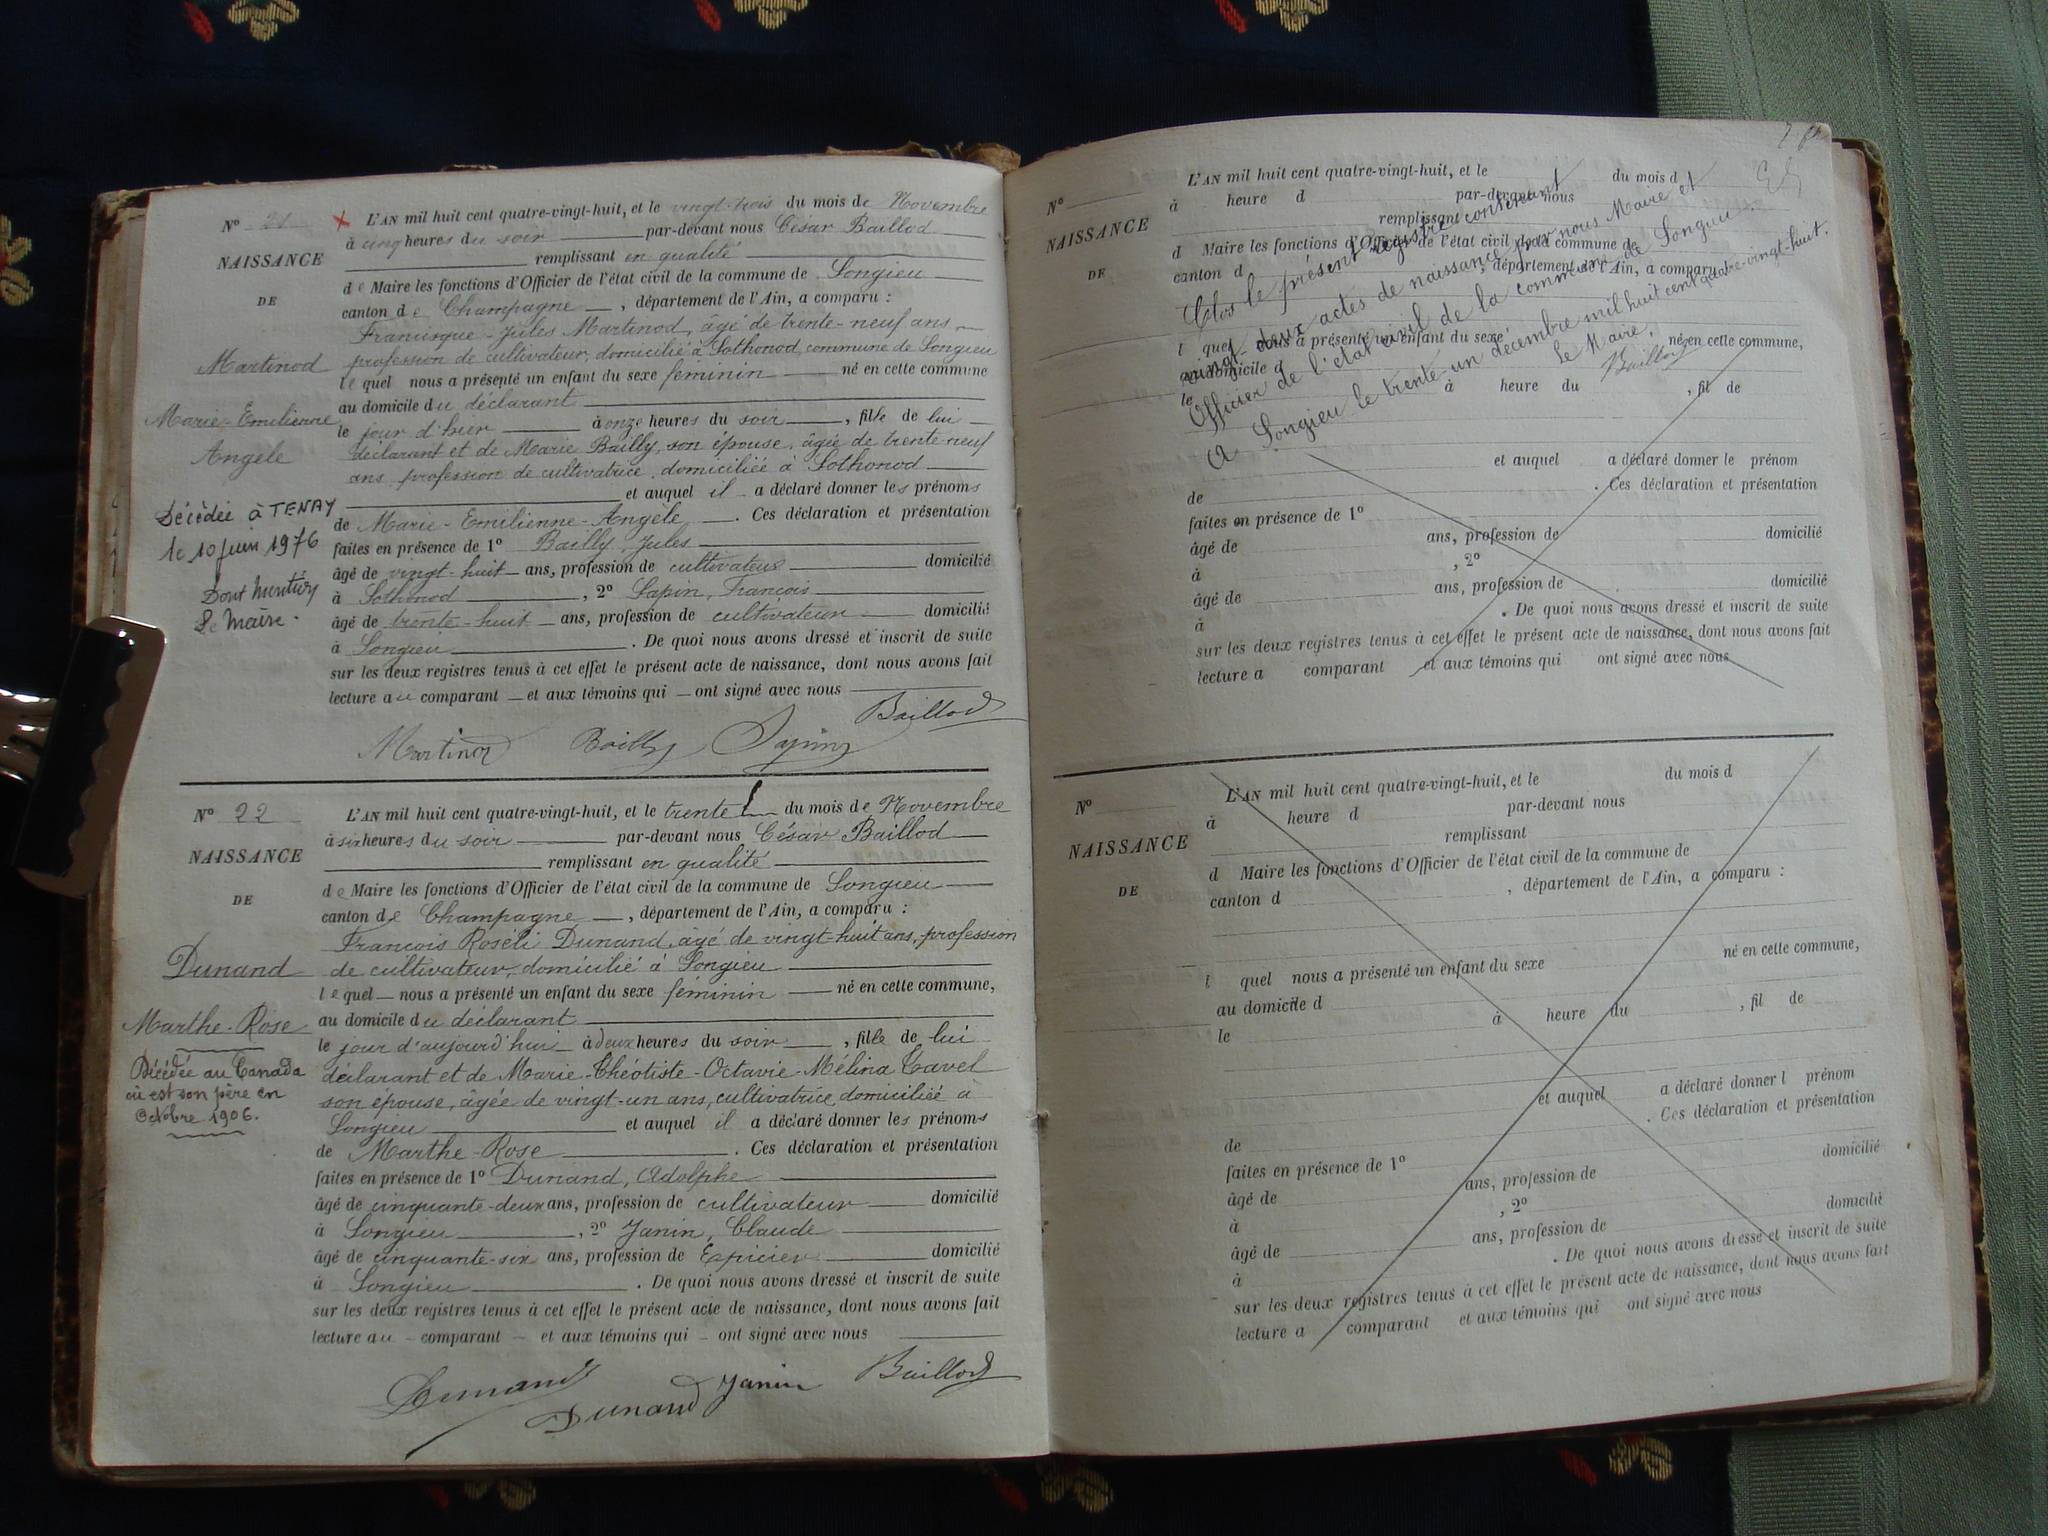 Nº 21
NAISSANCE
DE
Martinod
Marie-Emilienne
Angèle
Décèdée à TENAY
le 10 juin 1976
Dont mention
Le Maire.
L'AN mil huit cent quatre-vingt-huit, et le vingt-trois du mois de Novembre
à cinq heures du soir par-devant nous César Baillod
remplissant en qualité
de Maire les fonctions d'Officier de l'état civil de la commune de Songieu
canton de Champagne, département de l'Ain, a comparu :
Francisque-Jules Martinod, âgé de trente-neuf ans
profession de cultivateur, domicilié à Sothonod, commune de Songieu
lequel nous a présenté un enfant du sexe féminin né en cette commune
au domicile du déclarant
le jour d'hier à onze heures du soir, fille de lui
déclarant et de Marie Bailly, son épouse, âgée de trente-neuf
ans, profession de cultivatrice, domiciliée à Sothonod
et auquel il a déclaré donner les prénoms
de Marie-Emilienne-Angèle. Ces déclaration et présentation
faites en présence de 1º Bailly, Jules
âgé de vingt-huit ans, profession de cultivateur domicilié
à Sothonod, 2º Sapin, François
âgé de trente-huit ans, profession de cultivateur domicilié
à Songieu. De quoi nous avons dressé et inscrit de suite
sur les deux registres tenus à cet effet le présent acte de naissance, dont nous avons fait
lecture au comparant et aux témoins qui ont signé avec nous
Baillod
Martinod Bailly Sapin
Nº 22
NAISSANCE
DE
Dunand
Marthe-Rose
Décédée au Canada
où est son père en
Octobre 1906.
L'AN mil huit cent quatre-vingt-huit, et le trente du mois de Novembre
à six heures du soir par-devant nous César Baillod
remplissant en qualité
de Maire les fonctions d'Officier de l'état civil de la commune de Songieu
canton de Champagne, département de l'Ain, a comparu :
François Roséli Dunand, âgé de vingt-huit ans, profession
de cultivateur, domicilié à Songieu
lequel nous a présenté un enfant du sexe féminin né en cette commune,
au domicile du déclarant
le jour d'aujourd'hui à deux heures du soir, fille de lui
déclarant et de Marie-Théotiste-Octavie-Mélina Tavel
son épouse, âgée de vingt-un ans, cultivatrice, domiciliée à
Songieu et auquel il a déclaré donner les prénoms
de Marthe-Rose. Ces déclaration et présentation
faites en présence de 1º Dunand, Adolphe
âgé de cinquante-deux ans, profession de cultivateur domicilié
à Songieu, 2º Janin, Claude
âgé de cinquante-six ans, profession de Epicier domicilié
à Songieu. De quoi nous avons dressé et inscrit de suite
sur les deux registres tenus à cet effet le présent acte de naissance, dont nous avons fait
lecture au comparant et aux témoins qui ont signé avec nous
Dunand Dunand Janin Baillod
Nº
NAISSANCE
DE
L'AN mil huit cent quatre-vingt-huit, et le du mois d
à heure d par-devant nous
remplissant
d Maire les fonctions d'Officier de l'état civil de la commune de
canton d , département de l'Ain, a comparu :
Clos le présent registre contenant
vingt-deux actes de naissance par nous Maire et
Officier de l'état civil de la commune de Songieu.
A Songieu le trente-un décembre mil huit cent quatre-vingt-huit.
Le Maire,
Baillod
l quel nous a présenté un enfant du sexe né en cette commune,
au domicile d
le à heure du , fil de
et auquel a déclaré donner le prénom
de . Ces déclaration et présentation
faites en présence de 1º
âgé de ans, profession de domicilié
à , 2º
âgé de ans, profession de domicilié
à . De quoi nous avons dressé et inscrit de suite
sur les deux registres tenus à cet effet le présent acte de naissance, dont nous avons fait
lecture a comparant et aux témoins qui ont signé avec nous
Nº
NAISSANCE
DE
L'AN mil huit cent quatre-vingt-huit, et le du mois d
à heure d par-devant nous
remplissant
d Maire les fonctions d'Officier de l'état civil de la commune de
canton d , département de l'Ain, a comparu :
l quel nous a présenté un enfant du sexe né en cette commune,
au domicile d
le à heure du , fil de
et auquel a déclaré donner l prénom
de . Ces déclaration et présentation
faites en présence de 1º
âgé de ans, profession de domicilié
à , 2º
âgé de ans, profession de domicilié
à . De quoi nous avons dressé et inscrit de suite
sur les deux registres tenus à cet effet le présent acte de naissance, dont nous avons fait
lecture a comparant et aux témoins qui ont signé avec nous